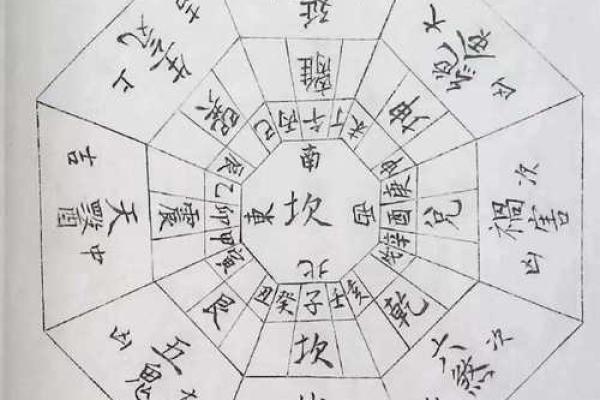 延
生氣
上
絕命
大
凶
離
巽
坤
巳
丙
午
丁
未
吉
天醫
中
震
辰
乙
卯
甲
寅
南
東
坎
西
北
申
庚
酉
辛
戌
兌
禍害
次
凶
丑
癸
子
壬
亥
艮
坎
乾
五鬼
凶
六煞
次